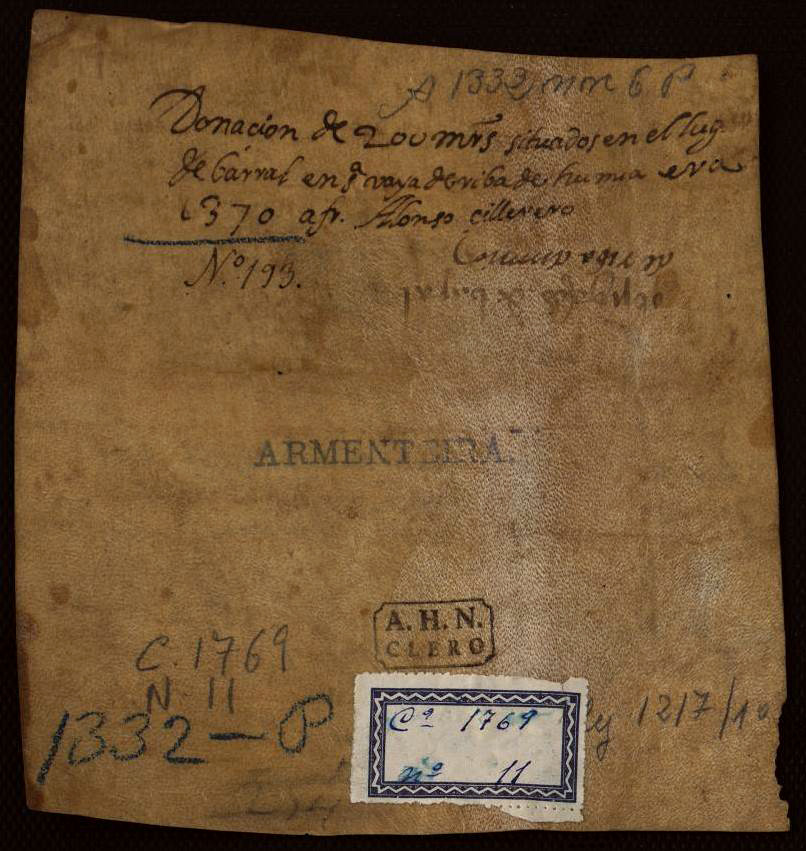 A 1332 nn 6 P
Donacion de 200 mrs situados en el lug.
de barral en s vaya de riba de humia era
1370 a fr. Alonso cillerero
N.º 193.
ARMENTEIRA.
A. H. N.
CLERO
C. 1769
N. 11
1332 - P
Cª 1769
nº 11
1217/10